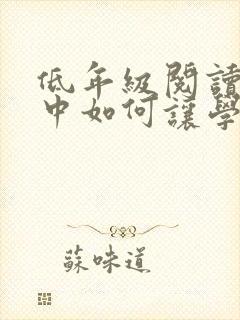 低年級閱讀
中如何讓學
蘇味道